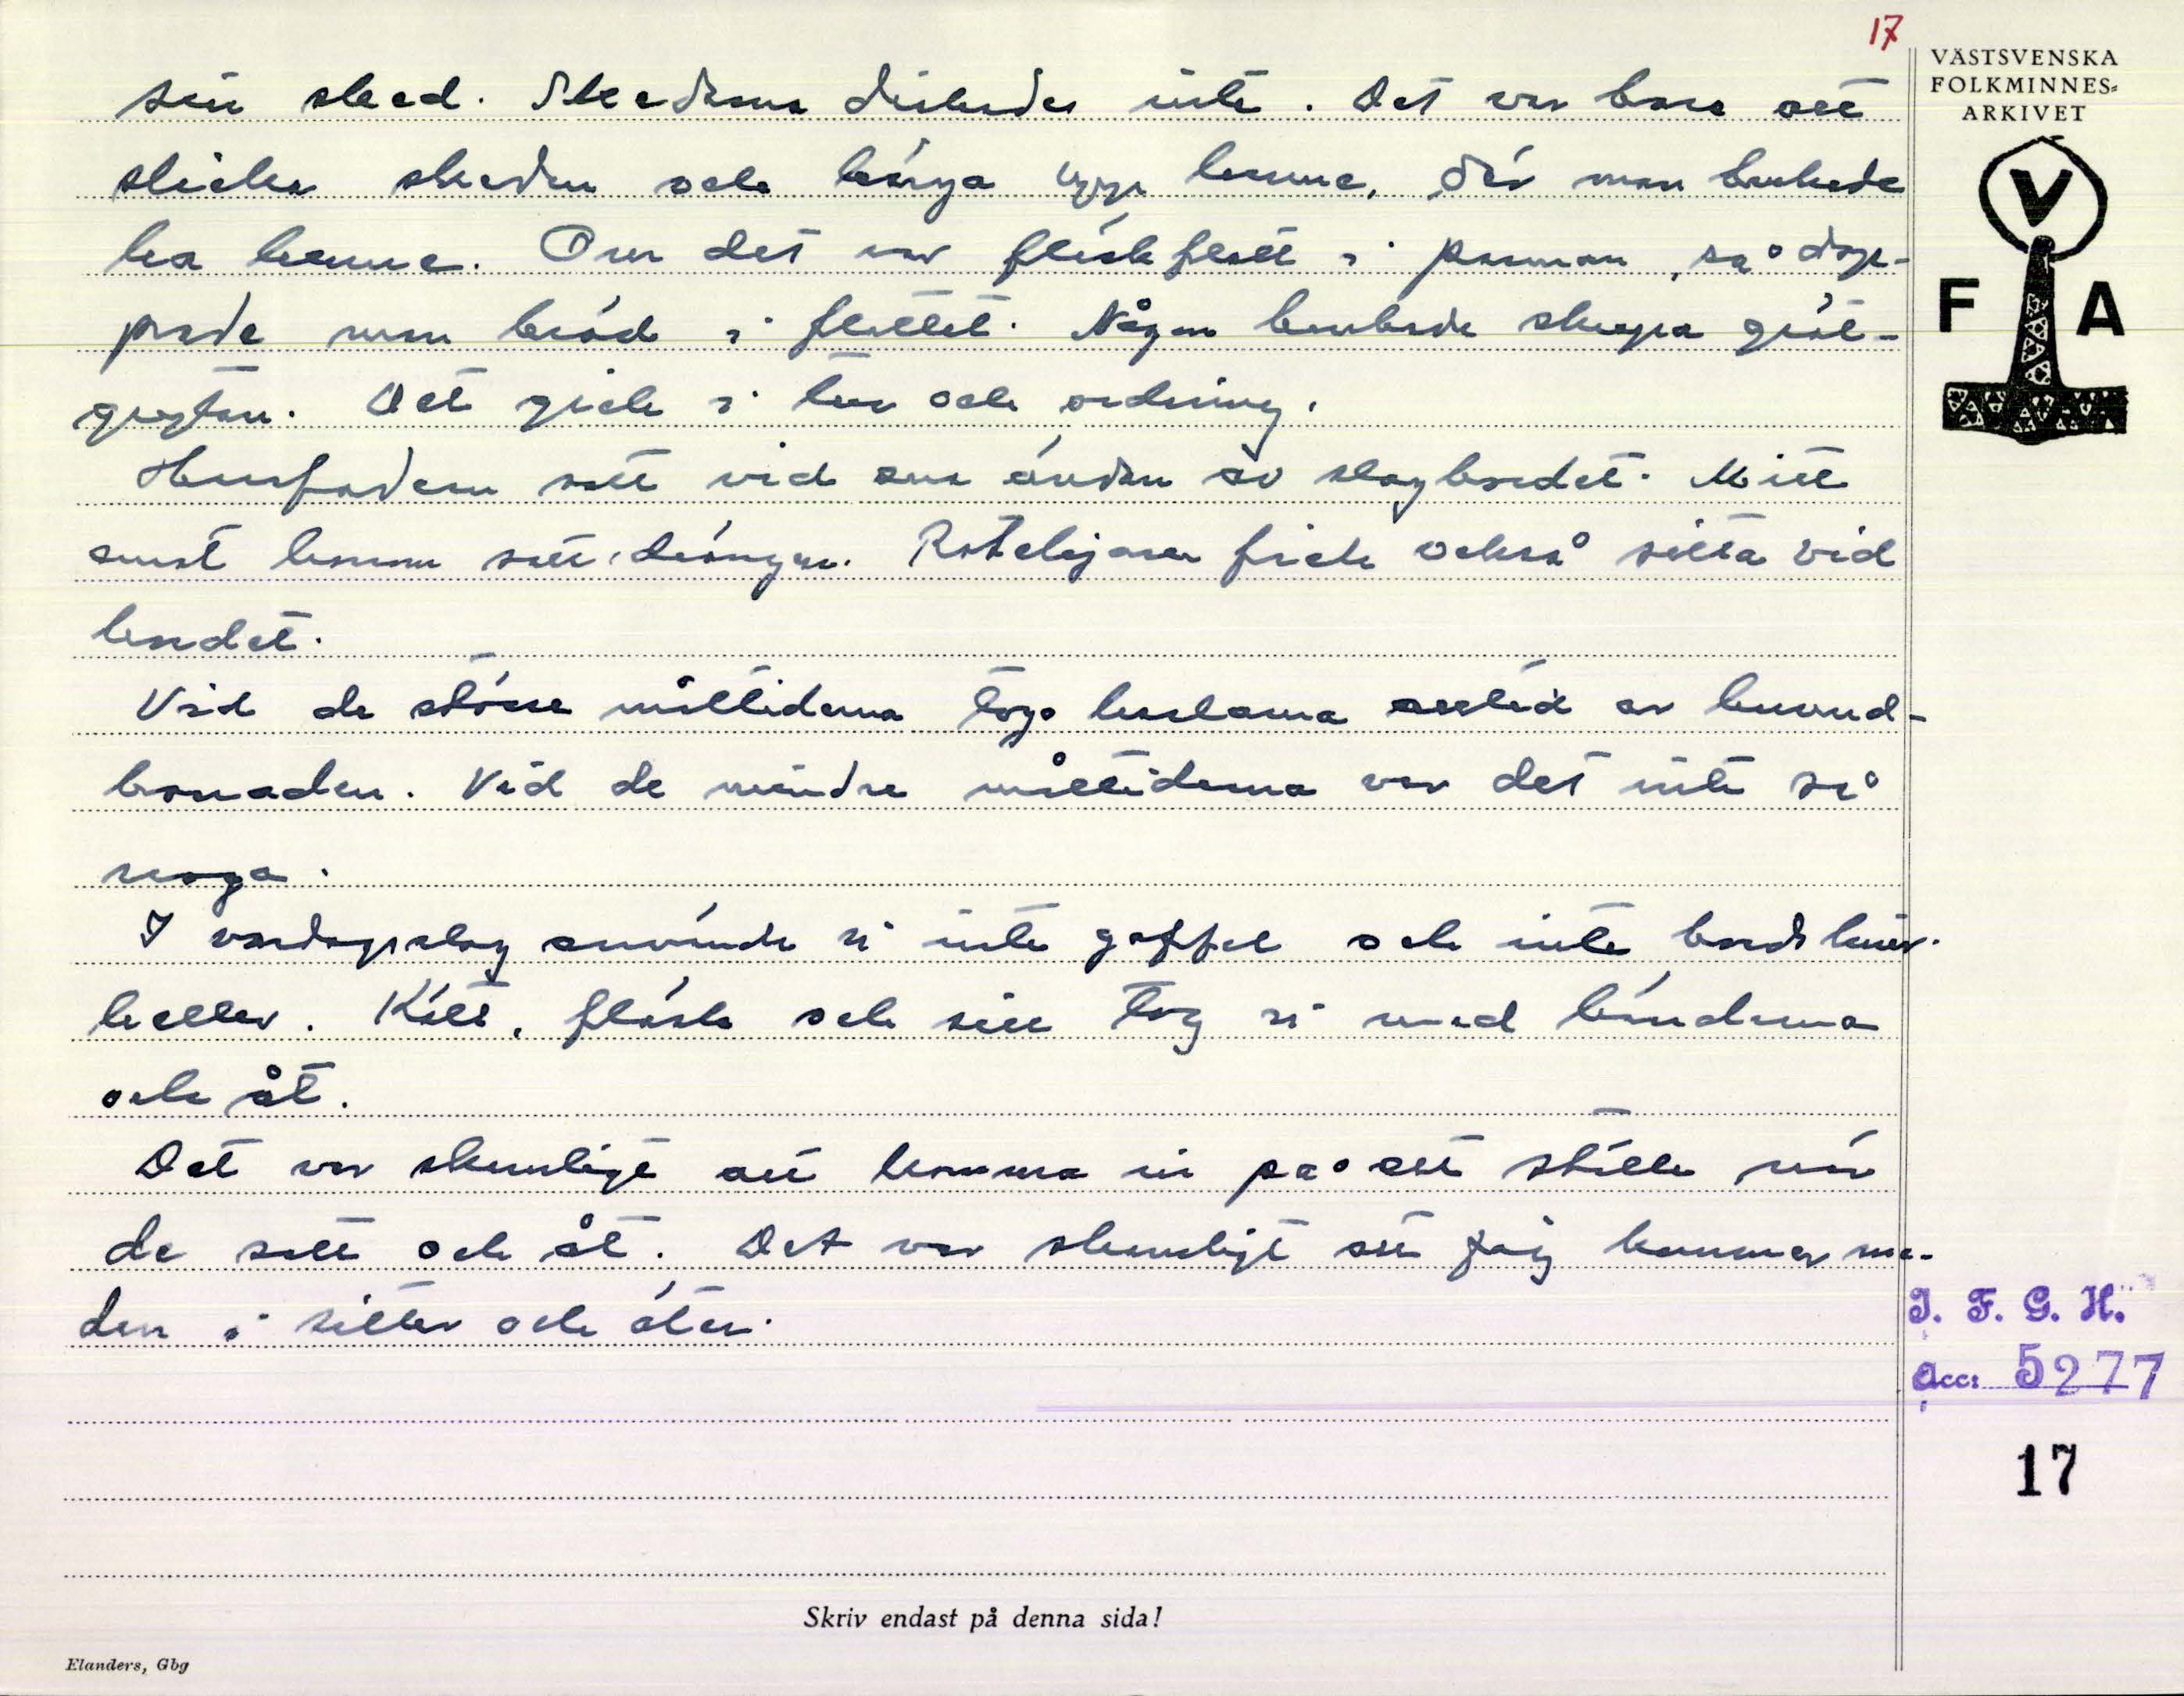 17
sin sked. Skedarna diskades inte. Det var bara att
slicka skeden och hänga upp henne, där man brukade
ha henne. Om det var fläskflott i pannan, så dop-
pade man bröd i flottet. Någon brukade skrapa gröt-
grytan. Det gick i tur och ordning.
Husfadern satt vid ena änden av slagbordet. Mitt
emot honom satt drängen. Rotehjonen fick också sitta vid
bordet.
Vid de större måltiderna togo karlarna av sig huvud-
bonaden. Vid de mindre måltiderna var det inte så
noga.
I vardagslag använde vi inte gaffel och inte bordskniv
heller. Kött, fläsk och sill tog vi med händerna
och åt.
Det var skamligt att komma in på ett ställe när
de satt och åt. Det var skamligt att jag kommer me-
dan i sitter och äter.
VÄSTSVENSKA
FOLKMINNES=
ARKIVET
V
F A
I. F. G. H.
Acc: 5277
17
Skriv endast på denna sida!
Elanders, Gbg